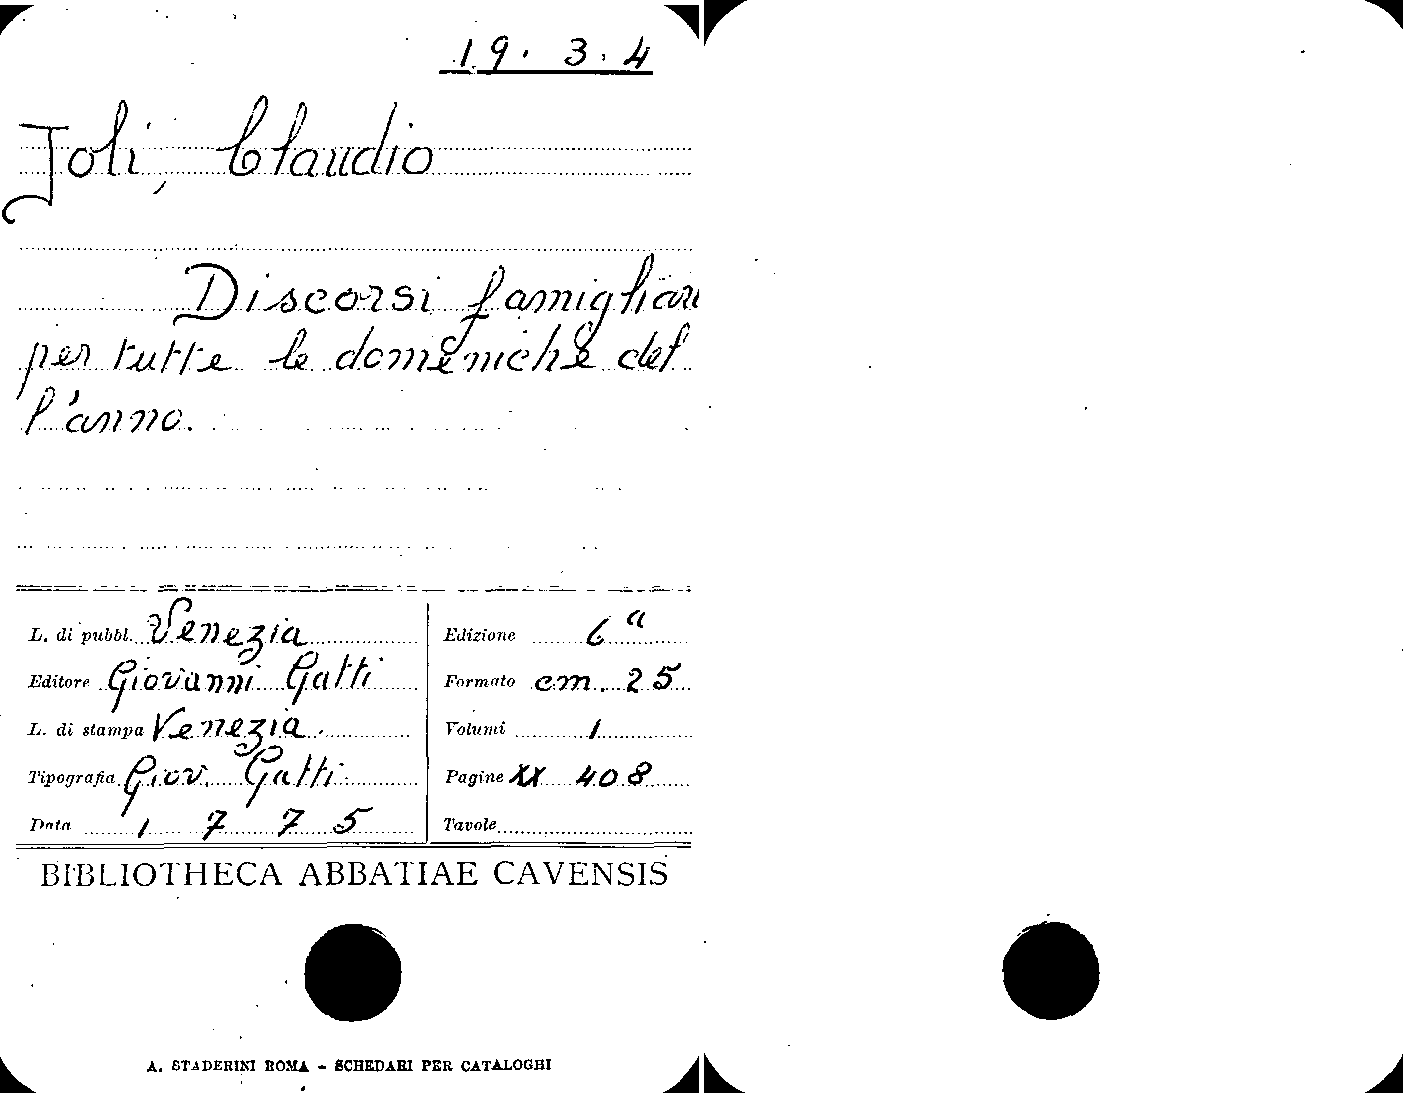 19. 3. 4
Joli, Claudio
Discorsi famigliari
per tutte le domeniche del
l'anno.
L. di pubbl. Venezia
Editore Giovanni Gatti
L. di stampa Venezia.
Tipografia Giov. Gatti.
Data 1775
Edizione 6a
Formato cm. 25
Volumi 1
Pagine XX 408
Tavole
BIBLIOTHECA ABBATIAE CAVENSIS
A. STADERINI ROMA - SCHEDARI PER CATALOGHI